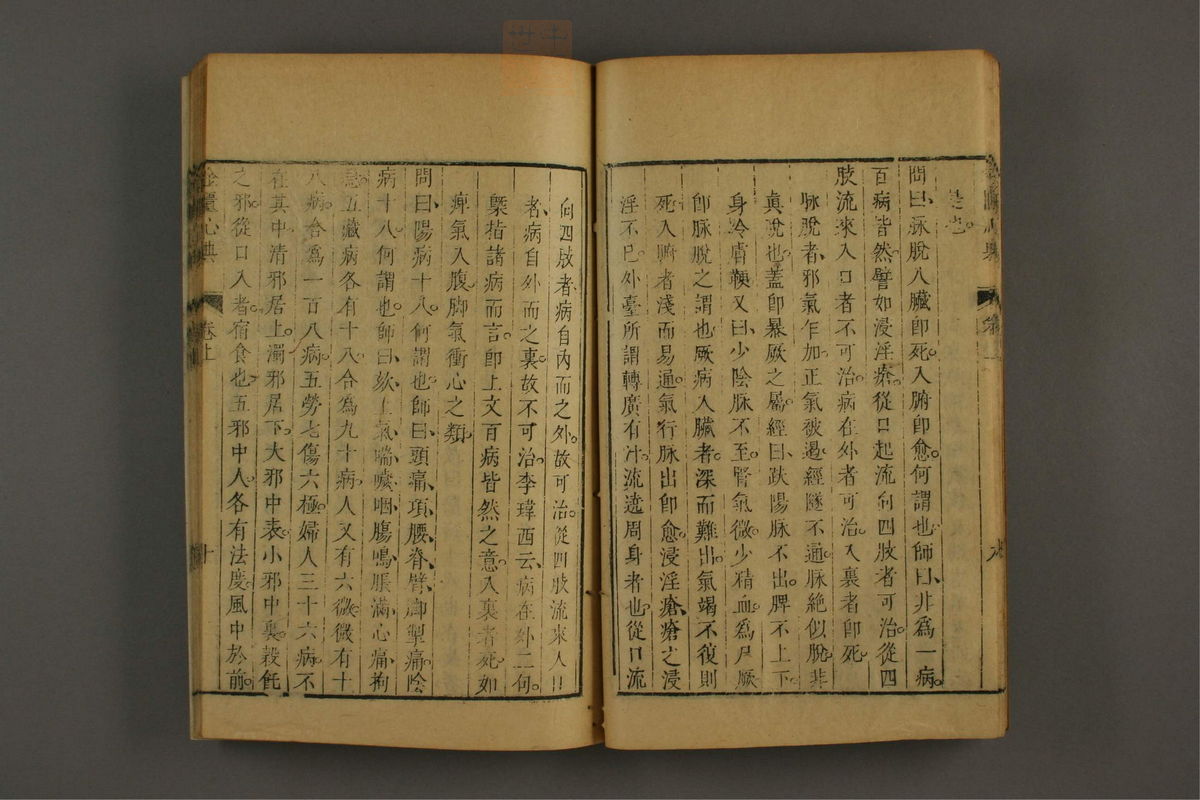 是也
問曰脉脫入臟卽死入腑卽愈何謂也師曰非爲一病
百病皆然譬如浸淫瘡從口起流向四肢者可治從四
肢流來入口者不可治病在外者可治入裏者卽死
脉脫者邪氣乍加正氣被遏經隧不通脉絶似脫非
眞脫也蓋卽暴厥之屬經曰趺陽脉不出脾不上下
身冷膚鞕又曰少陰脉不至腎氣微少精血爲尸厥
卽脉脫之謂也厥病入臟者深而難出氣竭不復則
死入腑者淺而易通氣行脉出卽愈浸淫瘡瘡之浸
淫不已外臺所謂轉廣有汁流遶周身者也從口流
向四肢者病自內而之外故可治從四肢流來入口
者病自外而之裏故不可治李瑋西云病在外二句
槩指諸病而言卽上文百病皆然之意入裏者死如
痺氣入腹脚氣衝心之類
問曰陽病十八何謂也師曰頭痛項腰脊臂脚掣痛陰
病十八何謂也師曰欬上氣喘噦咽腸鳴脹滿心痛拘
急五臟病各有十八合爲九十病人又有六微微有十
八病合爲一百八病五勞七傷六極婦人三十六病不
在其中淸邪居上濁邪居下大邪中表小邪中裏穀飥
之邪從口入者宿食也五邪中人各有法度風中於前
金匱心典 卷上 十